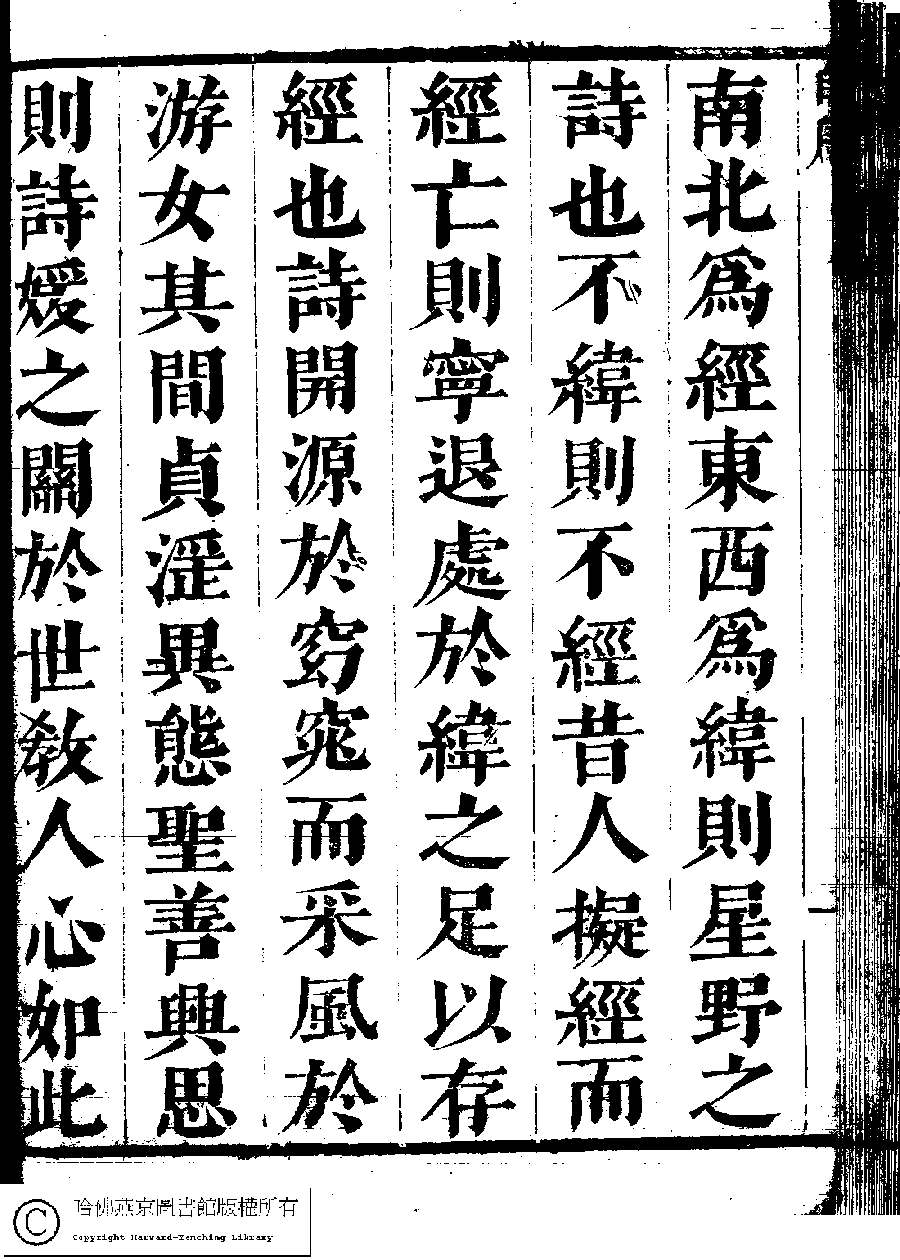 南北爲經東西爲緯則星野之
詩也不緯則不經昔人擬經而
經亡則寧退處於緯之足以存
經也詩開源於窈窕而采風於
游女其間貞淫異態聖善興思
則詩媛之關於世敎人心如此
哈佛燕京圖書館版權所有
Copyright Harvard-Yenching Library